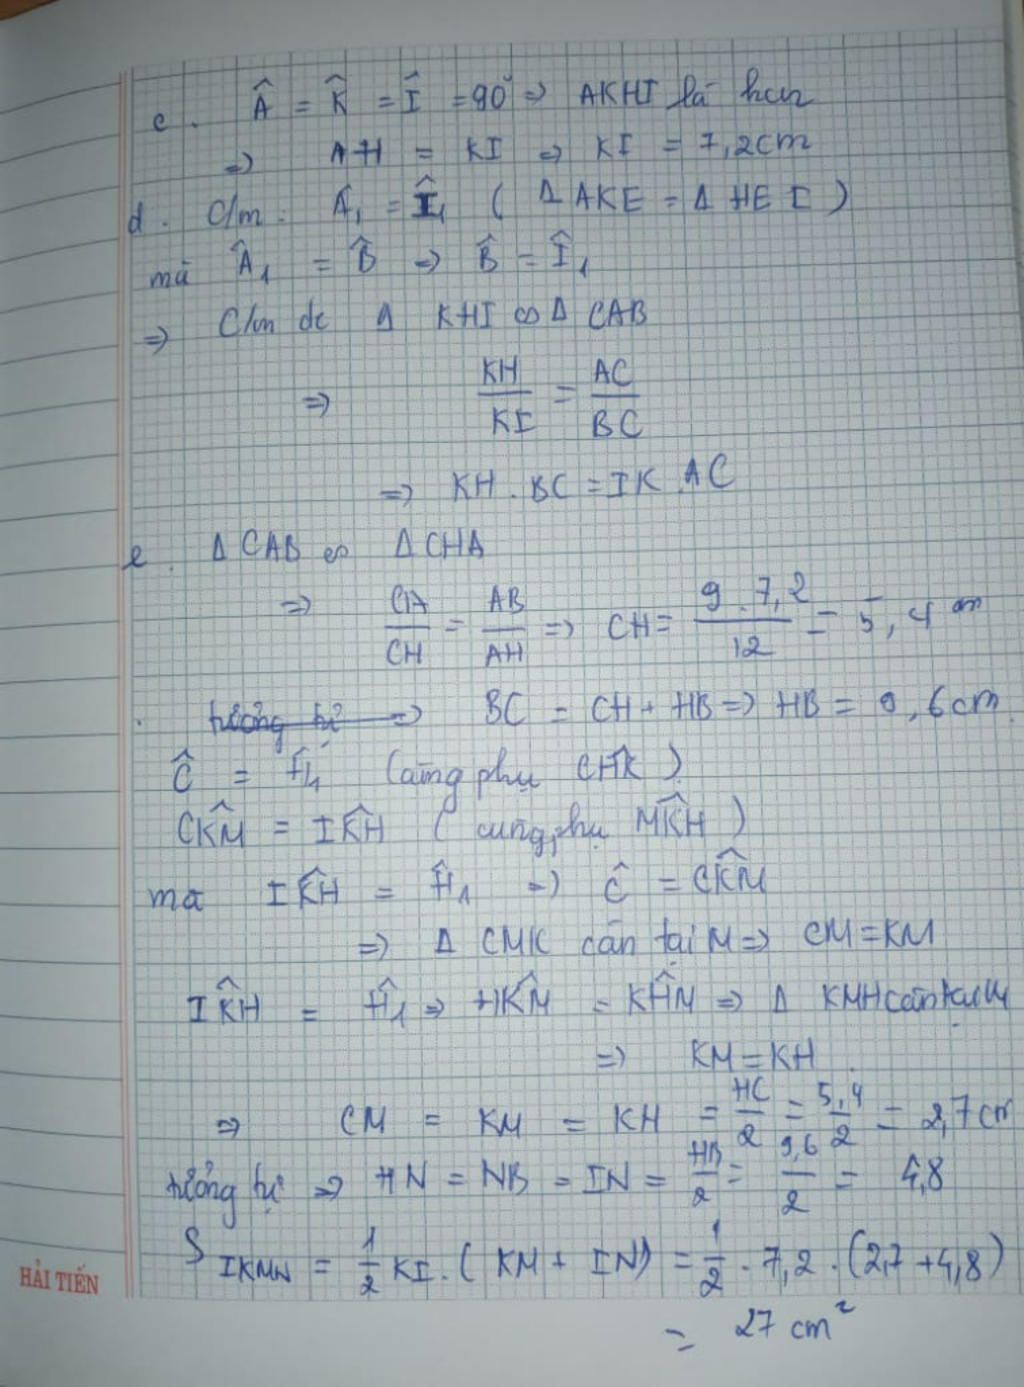 c. Â = K̂ = Î = 90° => AKHI là hcn
=> AH = KI => KI = 7,2cm
d. C/m: Â₁ = Î₁ ( Δ AKE = Δ HEI )
mà Â₁ = B̂ => B̂ = Î₁
=> C/m dc Δ KHI ∽ Δ CAB
=> KH/KI = AC/BC
=> KH . BC = IK . AC
e. Δ CAB ∽ Δ CHA
=> CA/CH = AB/AH => CH = 9 . 7,2/12 = 5,4 cm
tương tự => BC = CH + HB => HB = 9,6cm
Ĉ = Ĥ₁ (cùng phụ CĤK)
CK̂M = IK̂H ( cùng phụ MK̂H )
mà IK̂H = Ĥ₁ => Ĉ = CK̂M
=> Δ CMK cân tại M => CM = KM
IK̂H = Ĥ₁ => HK̂M = KĤM => Δ KMH cân tại M
=> KM = KH
=> CM = KM = KH = HC/2 = 5,4/2 = 2,7cm
tương tự => HN = NB = IN = HB/2 = 9,6/2 = 4,8
S IKMN = 1/2 KI . ( KM + IN ) = 1/2 . 7,2 . (2,7 + 4,8)
= 27 cm²
HẢI TIẾN